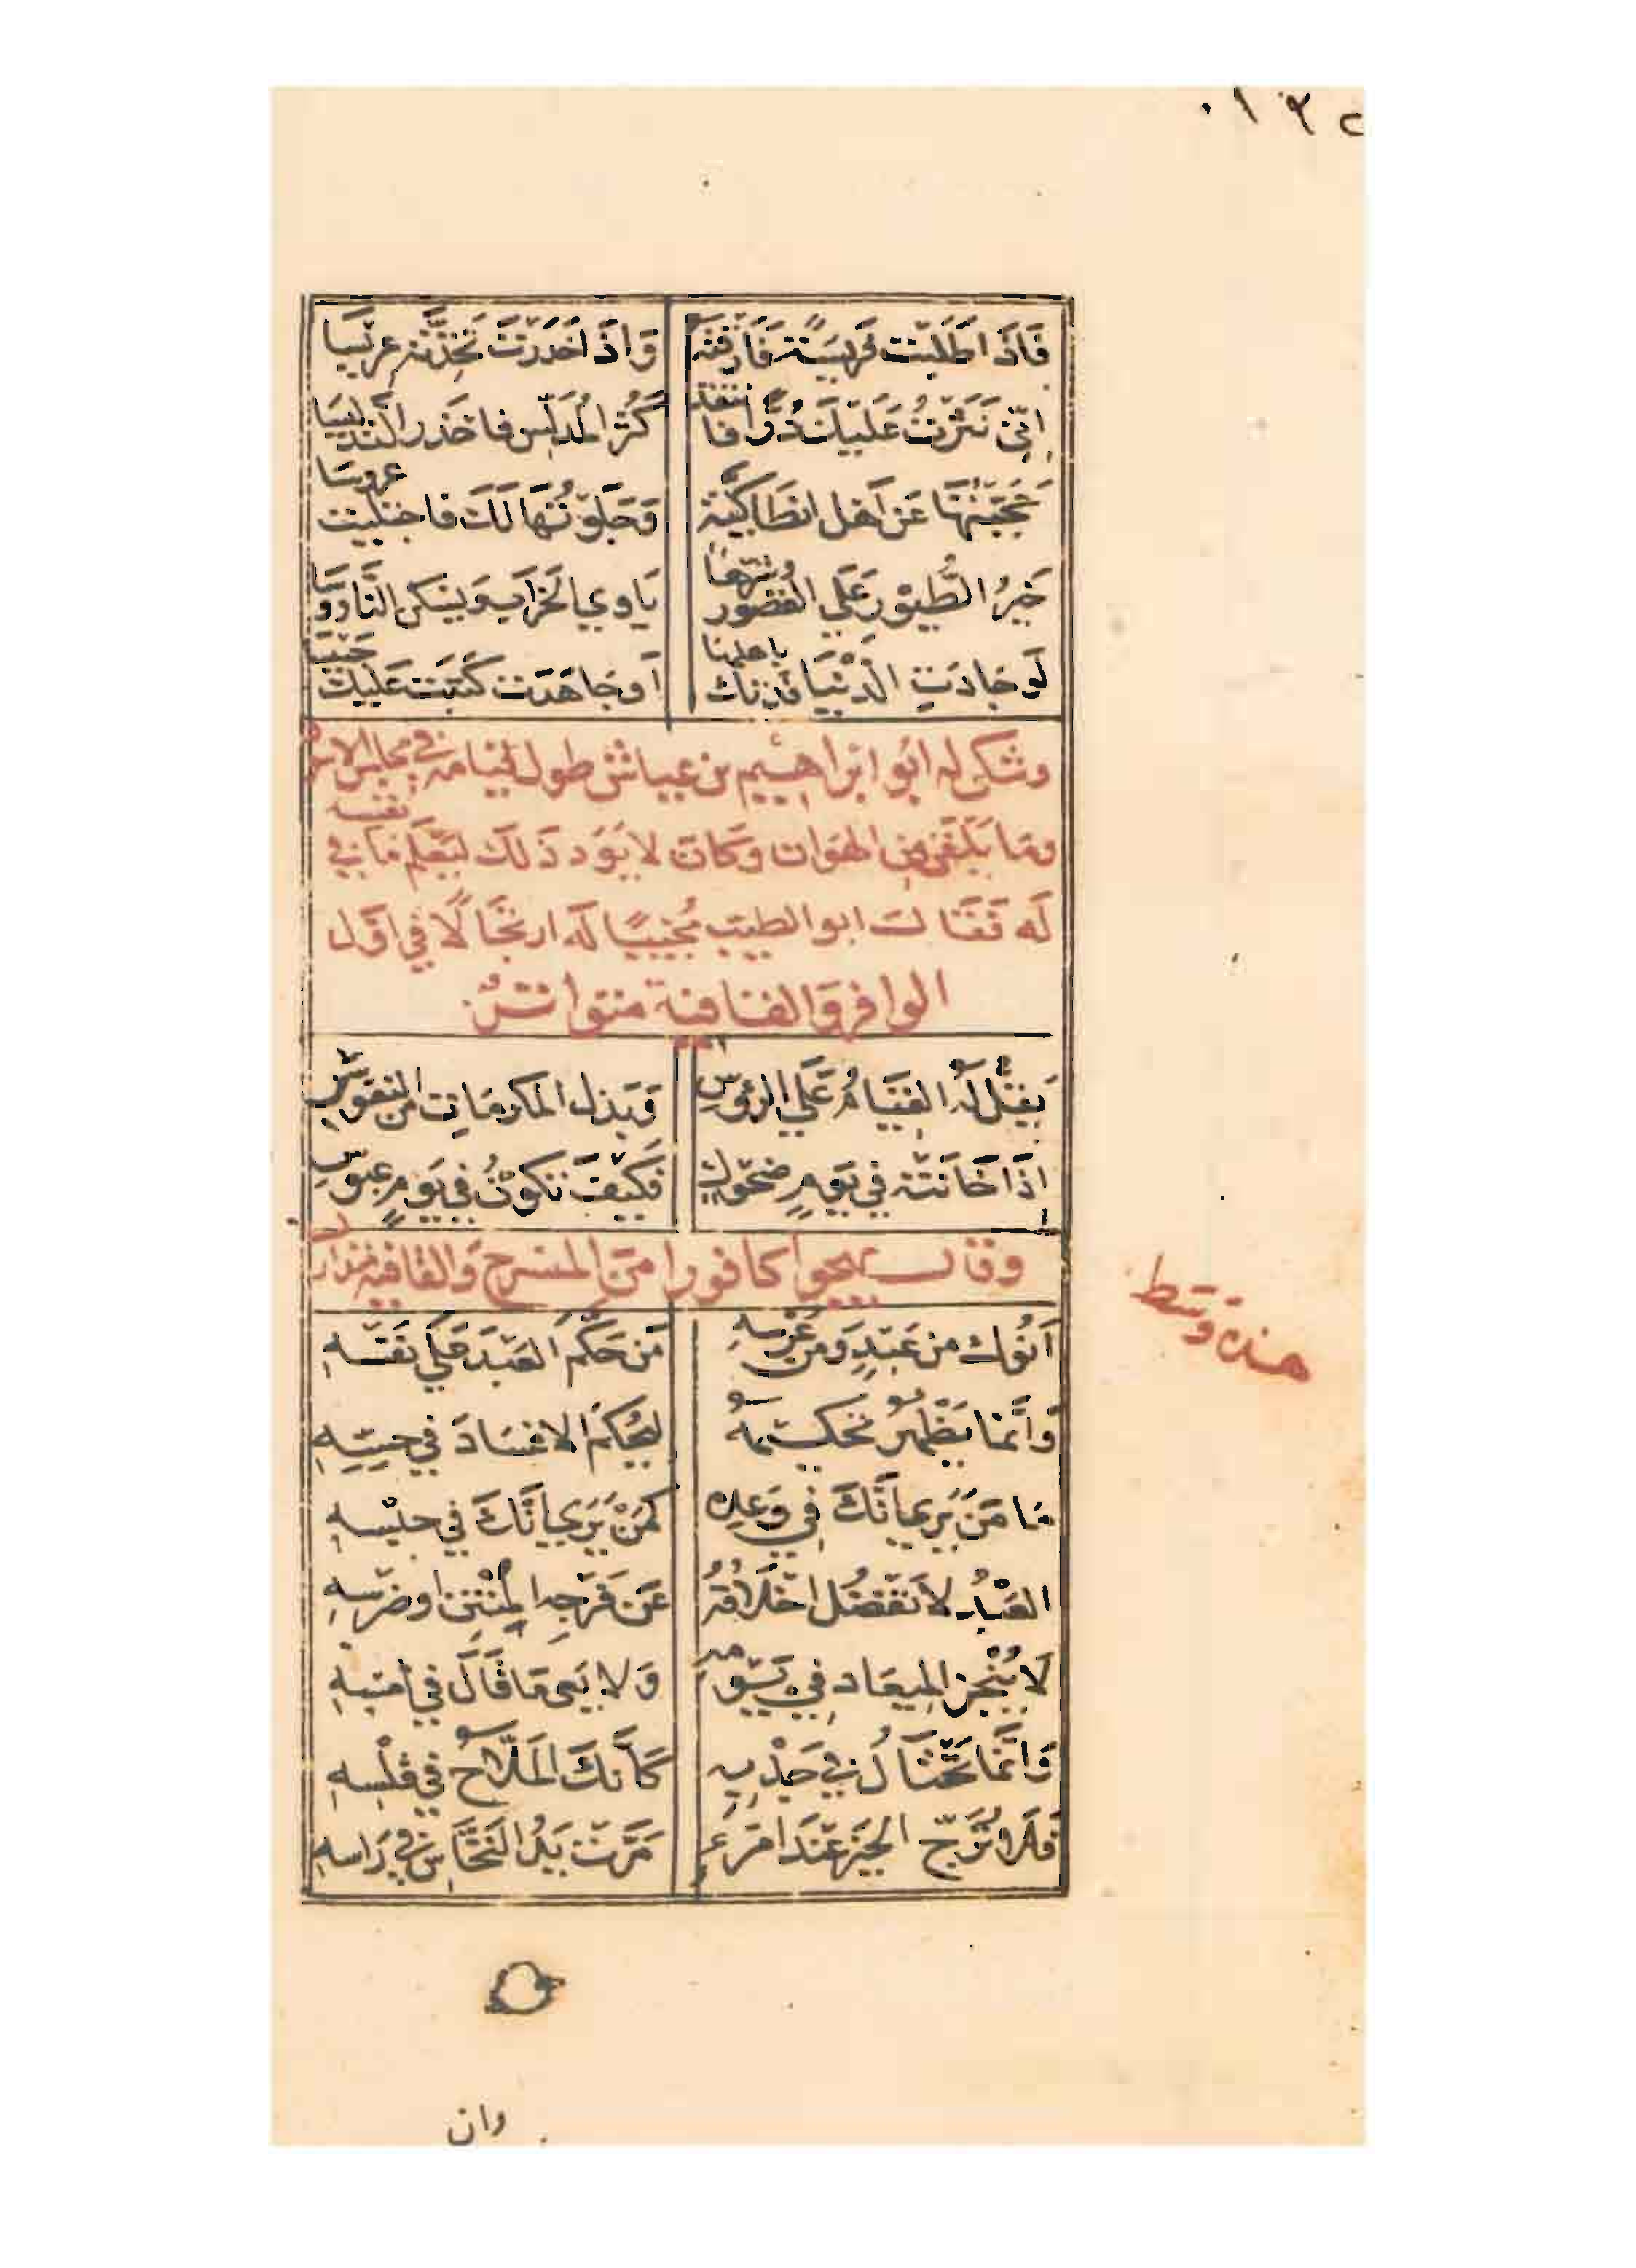 فَاذَا طَلَبْت فَريسَةً فَارَقْتَهُ وَاذَا خَدَرْتَ تَخِذْتَه عِرِّيسَا
اِنّي نَثَرْتُ عَلَيكَ دُرًّا فانتقد كَثُرَ المُدَلِّس فاحْذر التدليسَا
حَجَّبْتُهَا عَن اَهْل انطَاكِيَّة وَجَلَوْتُهَا لَكَ فاجتليت عروسَا
خَيرُ الطُّيُورِ عَلَى القُصُور وشَرّهَا يَاوي الخَرابَ وَيَسْكن النَّاوُوسَا
لَو جَادَتِ الدُنْيَا فَدَتك باهلهَا اَو جَاهَدَت كُتِبَت عَلَيك حَبيسَا
وشكى له ابُو ابراهيم بن عياش طول قيامه في مجالس
ومَا يَكلفني من الهَوان وكان لا يَوَد ذَلك ليعلم مَا في نفسه
لَه فَقَال ابو الطيب مُجيبًا لَه ارتجَالًا في اوّل
الوافر وَالقافية متواتر
يَقِلُّ لَهُ القيَامُ عَلَى الرؤوسِ وَبَذل المكرمَات من النفوسِ
اِذَا خَانَتْهُ في يَومٍ ضَحُوكٍ فَكَيفَ تكُونُ في يَومٍ عَبُوسِ
وقال يهجوا كافورا من المنسرح وَالقافيه متدارك
هذه وسط
اَنْوَك من عَبْدٍ وَمن عِرْسِهِ مَن حَكَّمَ العَبْدَ عَلَى نَفْسِهِ
وَاِنَّمَا يُظْهِرُ تحكيمهُ ليُحْكم الافسَادَ في حِسِّهِ
مَا مَنْ يَرَى اَنَّكَ في وَعده كَمَنْ يَرَى اَنَّكَ في حبْسِهِ
العَبْدُ لا تَفْضُل اخْلاقُهُ عَن فَرْجِهِ المُنْتِن او ضِرْسِهِ
لَا يُنْجز المِيعَاد في يَوْمه وَلا يَعِي مَا قَالَ في امْسِهِ
وَاِنَّمَا تَحْتَالُ في جَذْبِهِ كَاَنَّكَ المَلَّاحُ في قَلْسِهِ
فَلَا تُرَجّ الخيرَ عندَ امرئٍ مَرَّت يَدُ النَخَّاس في رَاسهِ
وان